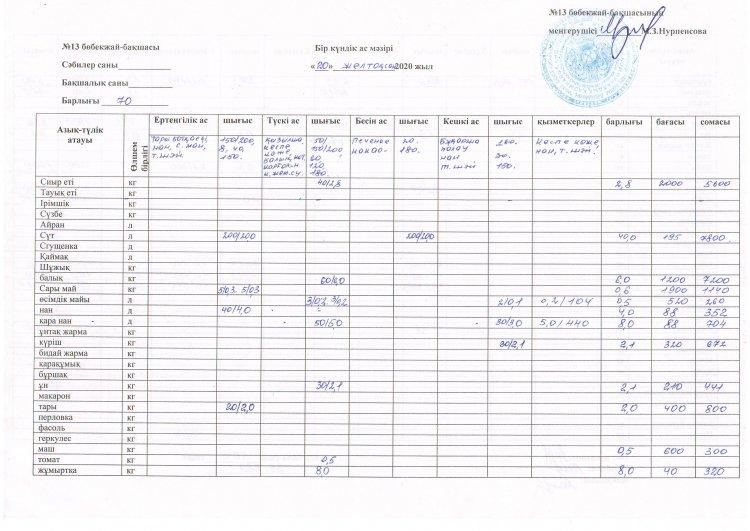 №13 бөбекжай-бақшасының
меңгерушісі М.З.Нурпеисова
№13 бөбекжай-бақшасы
Бір күндік ас мәзірі
Сәбилер саны
«20» желтоқсан 2020 жыл
Бақшалық саны
Барлығы 70
Азық-түлік атауы Өлшем бірлігі Ертеңгілік ас шығыс Түскі ас шығыс Бесін ас шығыс Кешкі ас шығыс қызметкерлер барлығы бағасы сомасы
Тары ботқасы, нан, с.май, т.шәй 150/200, 8, 40, 150. Қызылша, кеспе көже, балық, нан 50/ 150/200 60 120 180. Печенье какао 20. 180. Бұқарша палау нан т.шәй 160. 30. 150. Кеспе көже, нан, т.шәй.
Сиыр еті кг 40/2,8 2,8 2000 5600
Тауық еті кг
Ірімшік кг
Сүзбе кг
Айран л
Сүт л 200/200 200/200 40,0 195 7800
Сгущенка д
Қаймақ л
Шұжық кг
балық кг 60/6,0 6,0 1200 7200
Сары май кг 5/0,3 5/0,3 0,6 1900 1140
өсімдік майы л 3/0,2 3/0,2 2/0,1 0,2/104 0,5 520 260
нан д 40/4,0 4,0 88 352
қара нан д 50/5,0 30/3,0 5,0/440 8,0 88 704
ұнтақ жарма кг
күріш кг 30/2,1 2,1 320 672
бидай жарма кг
қарақұмық кг
бұршақ кг
ұн кг 30/2,1 2,1 210 441
макарон кг
тары кг 20/2,0 2,0 400 800
перловка кг
фасоль кг
геркулес кг
маш кг 0,5 600 300
томат кг 0,5
жұмыртқа кг 8,0 8,0 40 320